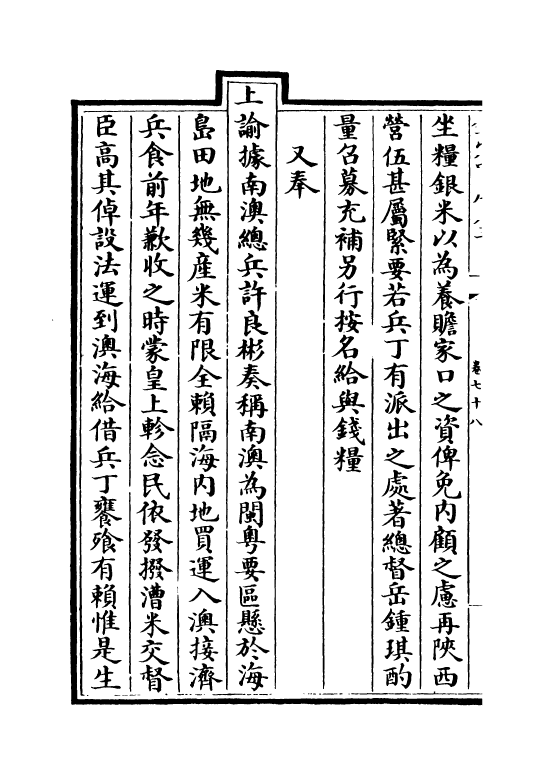 卷七十八
坐糧銀米以為養贍家口之資俾免内顧之慮再陜西
營伍甚屬緊要若兵丁有派出之處著總督岳鍾琪酌
量召募充補另行按名給與錢糧
又奉
上諭據南澳總兵許良彬奏稱南澳為閩粤要區懸於海
島田地無幾産米有限全賴隔海内地買運入澳接濟
兵食前年歉收之時蒙皇上軫念民依發撥漕米交督
臣高其倬設法運到澳海給借兵丁饔飱有賴惟是生